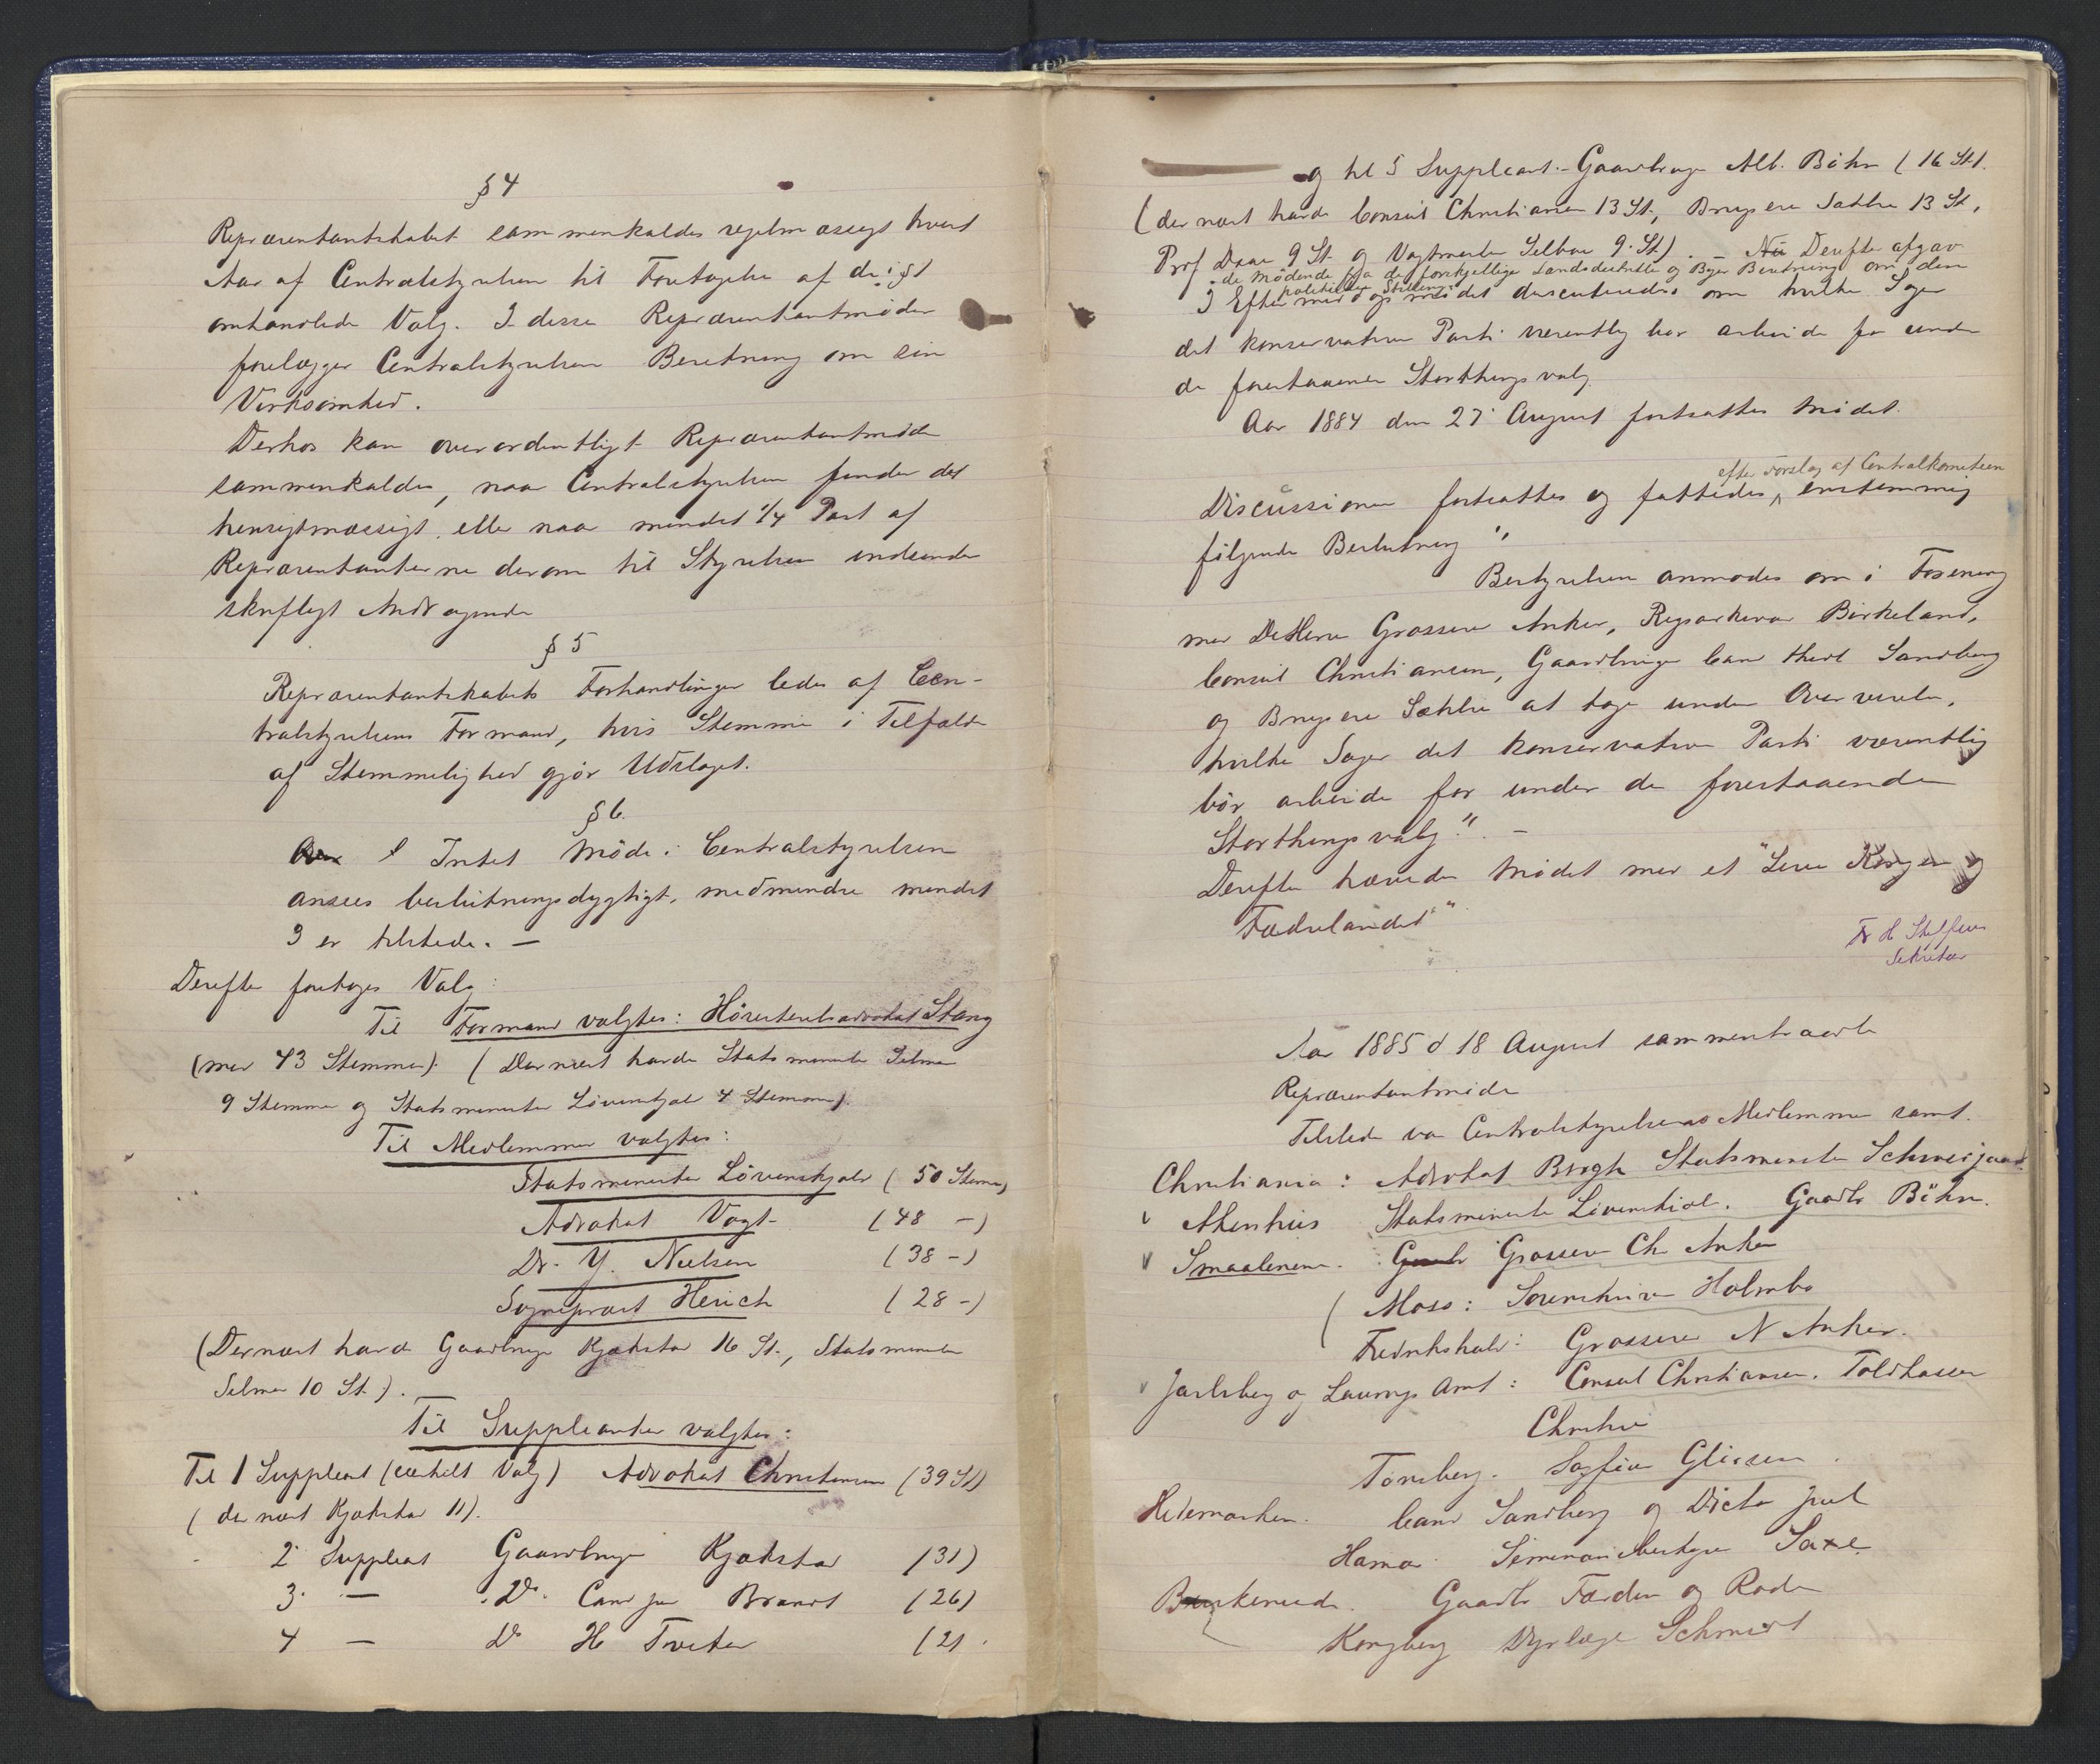 § 4
Repræsentantskabet sammenkaldes regelmæssigt hvert
Aar af Centralstyrelsen til Foretagelse af de i § 1
omhandlede Valg. I disse Repræsentantmøder
forelægger Centralstyrelsen Beretning om sin
Virksomhed.
Derhos kan overordentligt Repræsentantmøde
sammenkaldes, naar Centralstyrelsen finder det
hensigtmæssigt, eller naar mindst 1/4 Part af
Repræsentanterne derom til Styrelsen indsender
skriftligt Andragende
§ 5
Repræsentantskabets Forhandlinger ledes af Cen-
tralstyrelsens Formand, hvis Stemme i Tilfælde
af Stemmelighed gjør Udslaget.
§ 6.
Intet Møde i Centralstyrelsen
ansees beslutningsdygtigt, medmindre mindst
3 er tilstede. —
Derefter foretoges Valg:
Til Formand valgtes: Höiesteretsadvokat Stang
(med 43 Stemmer). (Dernæst havde Statsminister Selmer
9 Stemmer og Statsminister Løvenskjold 4 Stemmer).
Til Medlemmer valgtes:
Statsminister Lövenskjold (50 Stemm)
Advokat Vogt (48 —)
Dr. Y. Nielsen (38 —)
Sogneprest Heuch (28 —)
(Dernæst havde Gaardbruger Kjøkstad 16 St., Statsminister
Selmer 10 St.).
Til Suppleanter valgtes:
Til 1 Suppleant (særskilt Valg) Advokat Christensen (39 St)
(dernæst Kjøkstad 11).
2 Suppleant Gaardbruger Kjøkstad (31)
3. — Dr. Cand jur Brandt (26)
4 — Dr H Tveter (21.
og til 5 Suppleant. Gaardbruger Alb. Böhn (16 St).
(dernæst havde Consul Christiansen 13 St., Brugseier Sæhlie 13 St,
Prof Daae 9 St. og Vagtmester Selboe 9. St). — Nu Derefter afgav
de Mödende fra de forskjellige Landsdistrikter og Byer Beretning om den
politiske Stilling
I Eftermiddagsmödet discuteredes om hvilke Sager
det konservative Parti væsentlig bör arbeide for under
de forestaaende Storthingsvalg.
Aar 1884 den 27 August fortsattes Mödet.
efter Forslag af Centralkomiteen
Discussionen fortsattes og fattedes enstemmig
fölgende Beslutning "
Bestyrelsen anmodes om i Forening
med DHerrer Grosserer Anker, Rigsarkivar Birkeland,
Consul Christiansen, Gaardbruger Cand theol Sandberg
og Brugseier Sæhlie at tage under Overveielse,
hvilke Sager det konservative Parti væsentlig
bör arbeide for under de forestaaende
Storthingsvalg." —
Derefter hævedes Mödet med et "Leve Kongen og
Fædrelandet"
Fr H Steffens
Sekretær
Aar 1885 d 18 August sammentraadte
Repræsentantmöde
Tilstede var Centralstyrelsens Medlemmer samt.
Christiania: Advokat Bergh Statsminister Schweigaard
Akershus Statsminister Lövenskiold. Gaardbr Böhn.
Smaalenene. Gaardbr Grosserer Ch Anker
(Moss: Sorenskriver Holmbo
Fredrikshald: Grosserer N Anker.
Jarlsberg og Laurvigs Amt: Consul Christiansen. Toldkasser
Christie
Tönsberg. Sagförer Gliesen.
Hedemarken. Cand Sandberg og Distr Juel
Hamar Seminariebestyrer Saxe
Buskerud. Gaardbr Færden og Rode
Kongberg Dyrlæge Schmidt